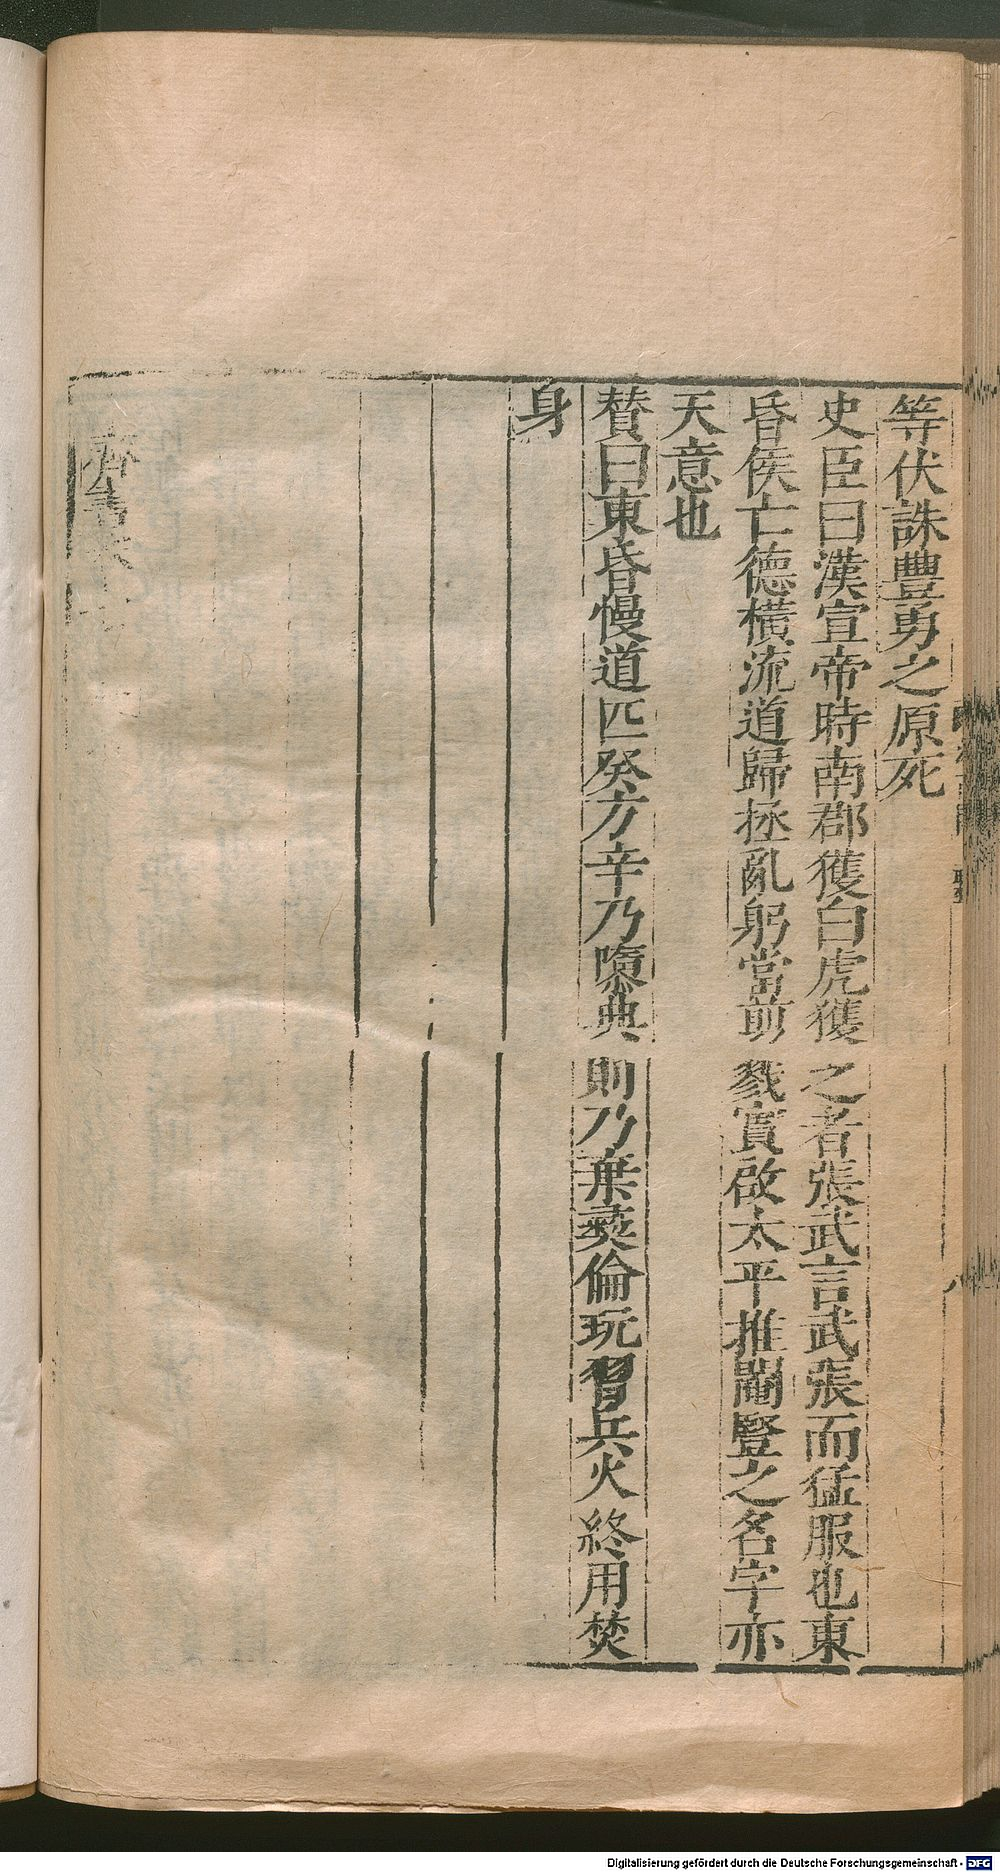 等伏誅豐勇之原死
史臣曰漢宣帝時南郡獲白虎獲之者張武言武張而猛服也東
昏侯亡德橫流道歸拯亂躬當前戮實啟太平推閹豎之名字亦
天意也
贊曰東昏慢道匹癸方辛乃隳典則乃棄彝倫玩習兵火終用焚
身
齊書
八
Digitalisierung gefördert durch die Deutsche Forschungsgemeinschaft - DFG